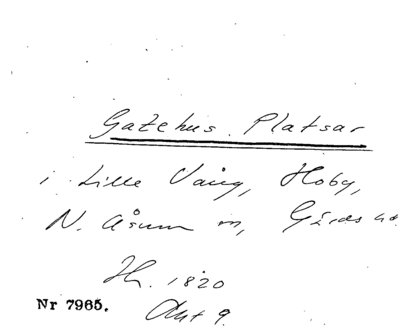 Gatehus Platsar
i Lille Vång, Hoby,
N. Åsum m, Gärds hd.
Hr. 1820
Nr 7965.
Akt 9.